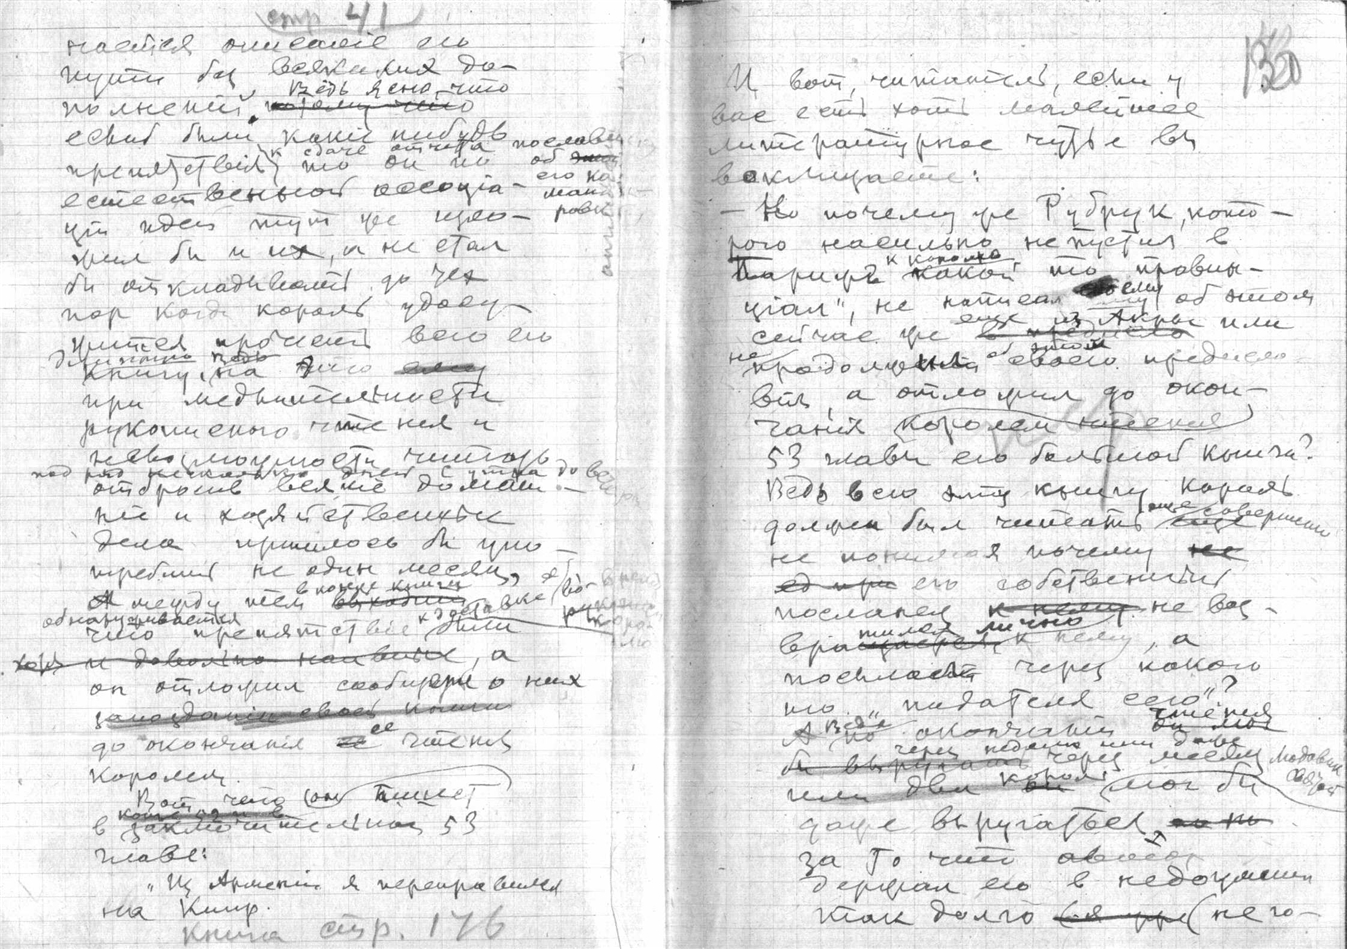 стр. 41
нается описание его
пути без всяких до-
полнений. Ведь ясно, что
еслиб были какие нибудь
препятствия к сдаче отчета посланцу об его командировке
то он по
естественной ассоциа-
ции идей тут же изло-
жил бы и их, а не стал
бы откладывать до тех
пор когда король удосу-
жится прочесть всю его
книгу, на что
при медлительности
рукописного чтения и
невозможности читать
под ряд несколько дней с утра до вечера
отбросив всякие домаш-
ние и хозяйственные
дела пришлось бы упо-
требить не один месяц,
А между тем в конце книги
обнаруживается
что препятствие были
и довольно наивные, а
он отложил сообщение о них
до окончания ее чтения
королем.
Вот что он пишет
в заключительной 53
главе:
„Из Армении я переправился
на Кипр.
книга стр. 176
И вот, читатель, если у
вас есть хоть малейшее
литературное чутье вы
воклицаете:
— Но почему же Рубрук, кото-
рого насильно не пустил в
Париж к королю какой то провин-
циал", не написал своему об этом
сейчас же еще из Акры или
не продолжил об этом своего предисло-
вия, а отложил до окон-
чания королем чтения
53 главы его большой книги?
Ведь всю эту книгу король
должен был читать еще совершенно
не понимая почему не
его собственный
посланец к нему не воз-
вратился лично к нему, а
посылает через какого
то „подателя сего"?
Ведь по окончании чтения
через неделю или даже через месяц
или два король мог бы
даже выругаться
за то что автор
держал его в недоумении
так долго